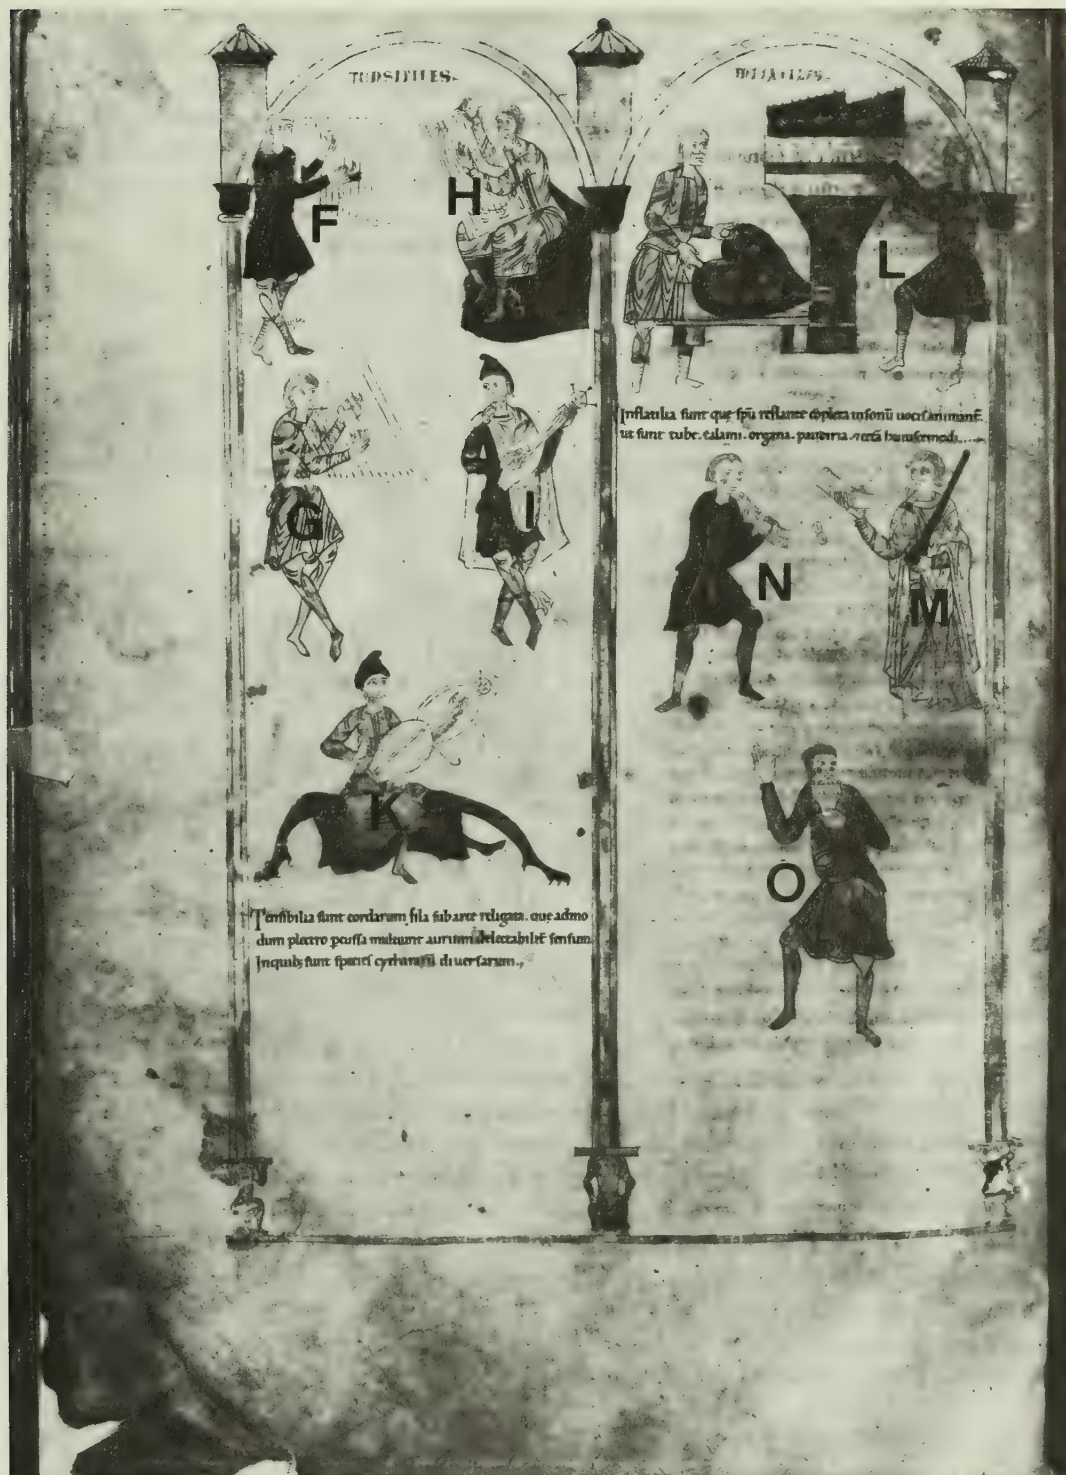 F
H
L
Inflatilia sunt que spu reflante cõpleta in sonũ uocis animant̃
ut sunt tube. calami. organa. pandiria.
G
I
N
M
K
O
Tensibilia sunt cordarum fila sub arte religata. que admo
dum plectro pcussa mulcunt aurium delectabilit̃ sensum
Inquib; sunt species cythararũ diuersarum.,